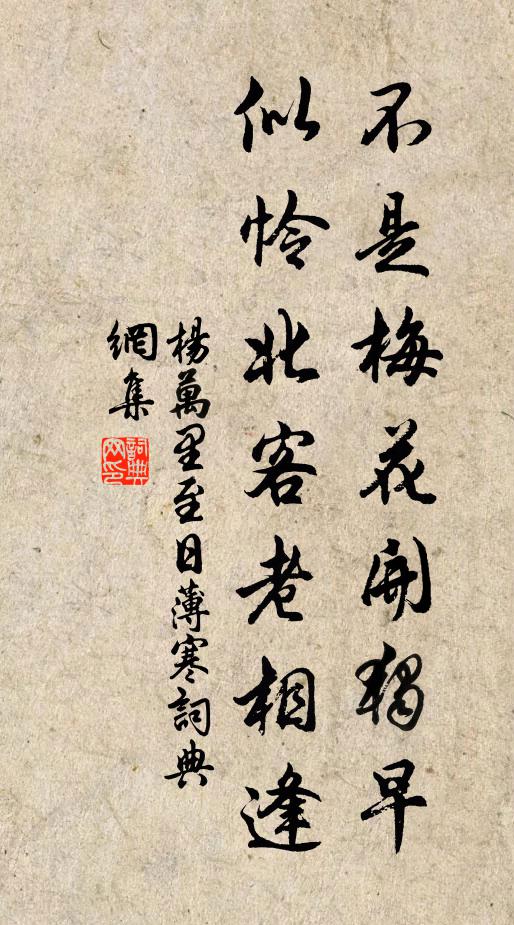 不是梅花開獨早
似憐北客老相逢
楊萬里至日薄寒詞典
網集
詞典
网印